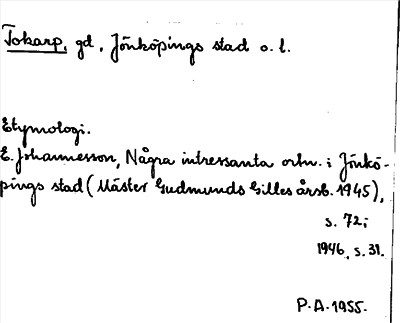 Tokarp, gd, Jönköpings stad o. l.
Etymologi.
E. Johannesson, Några intressanta ortn. i Jönkö-
pings stad (Mäster Gudmunds Gilles årsb. 1945),
s. 72;
1946, s. 31.
P.A. 1955.